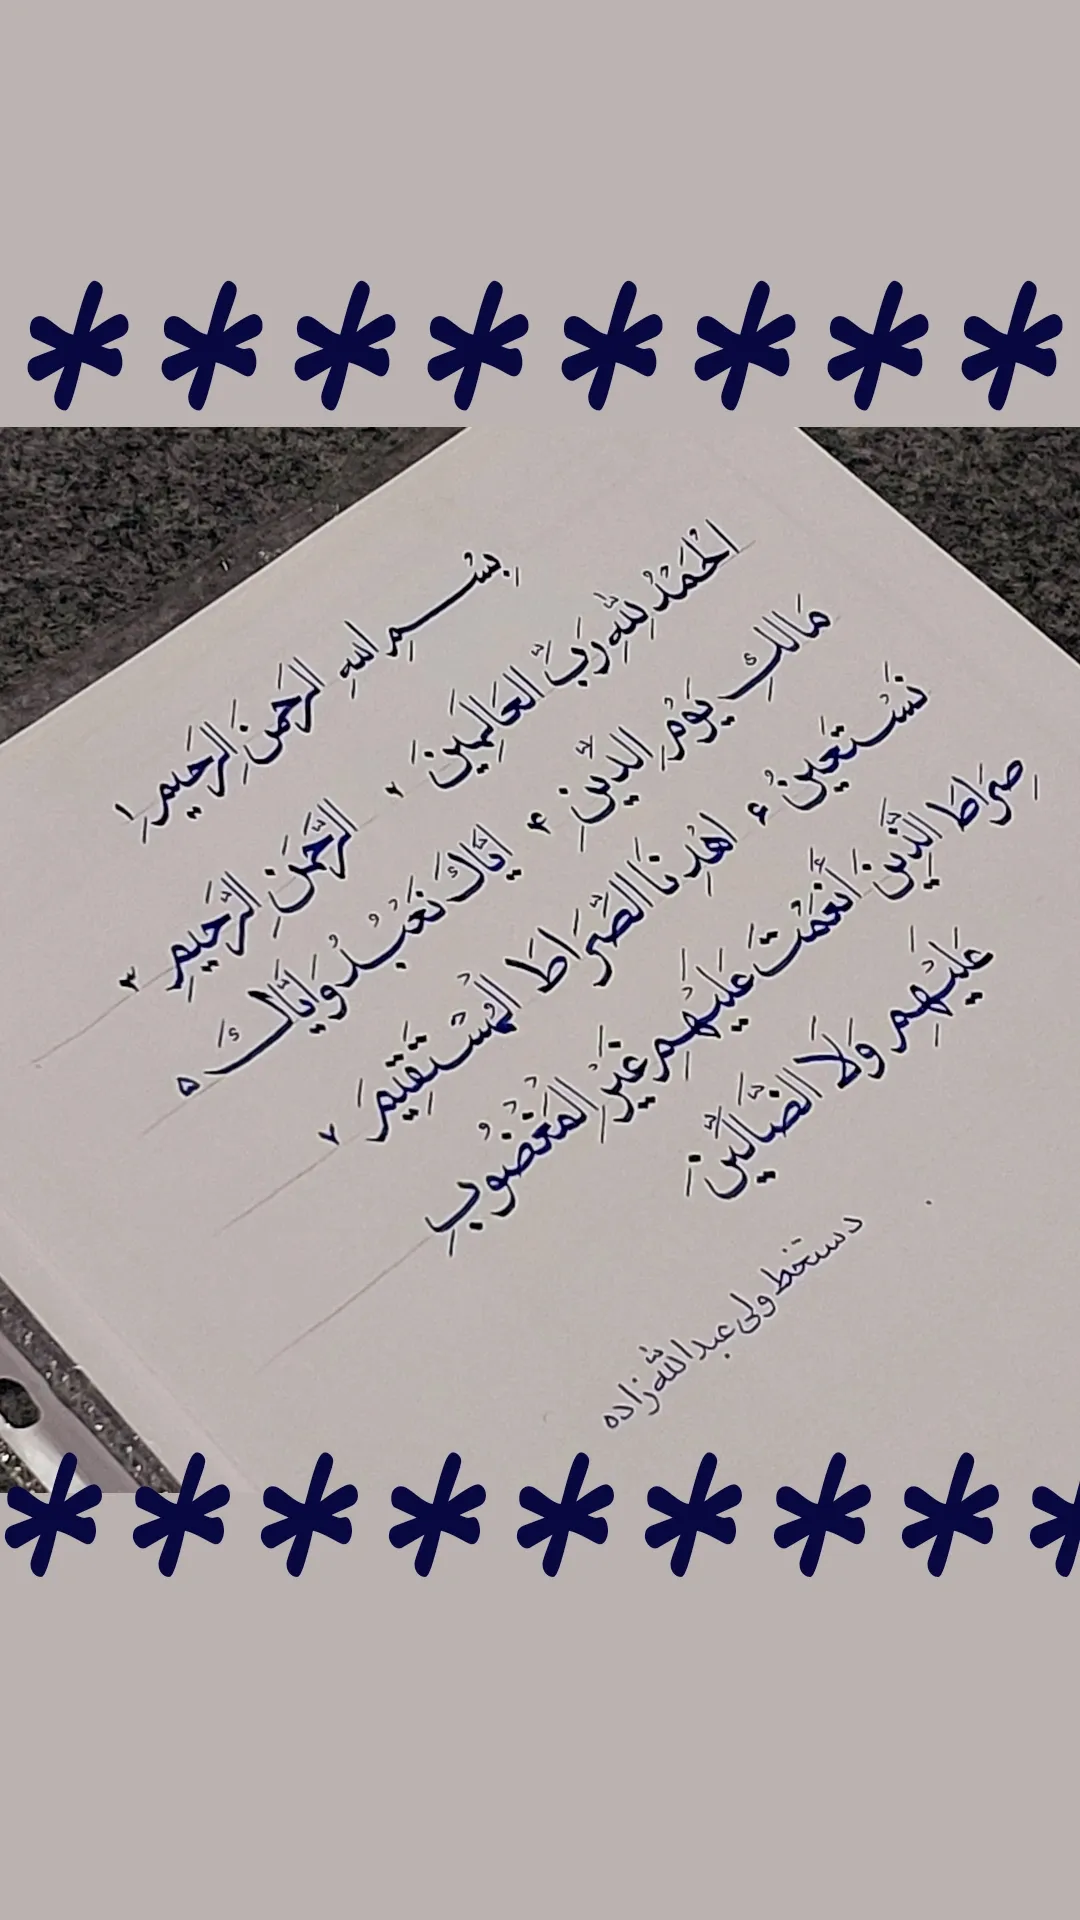 بِسْمِ اللهِ الرَحمنِ الرَحيمِ ۱
الْحَمَدُ لِلّهِ رَبِّ الْعَالَمِينَ ۲ الرَّحْمنِ الرَّحِيمِ ۳
مَالِكِ يَوْمِ الدِّينِ ۴ إِيَّاكَ نَعْبُدُ وَإِيَّاكَ ۵
نَسْتَعِينُ ۶ اهْدِنَا الصِّرَاطَ الْمُسْتَقِيمَ ۷
صِرَاطَ الَّذِينَ أَنْعَمْتَ عَلَيْهِمْ غَيْرِ الْمَغْضُوبِ
عَلَيْهِمْ وَلَا الضَّالِّينَ
دستخط ولی عبداللّه زاده